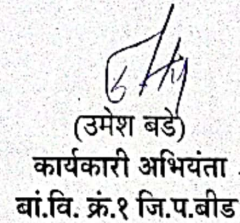 (उमेश बडे)
कार्यकारी अभियंता
बां.वि. क्रं.१ जि.प.बीड